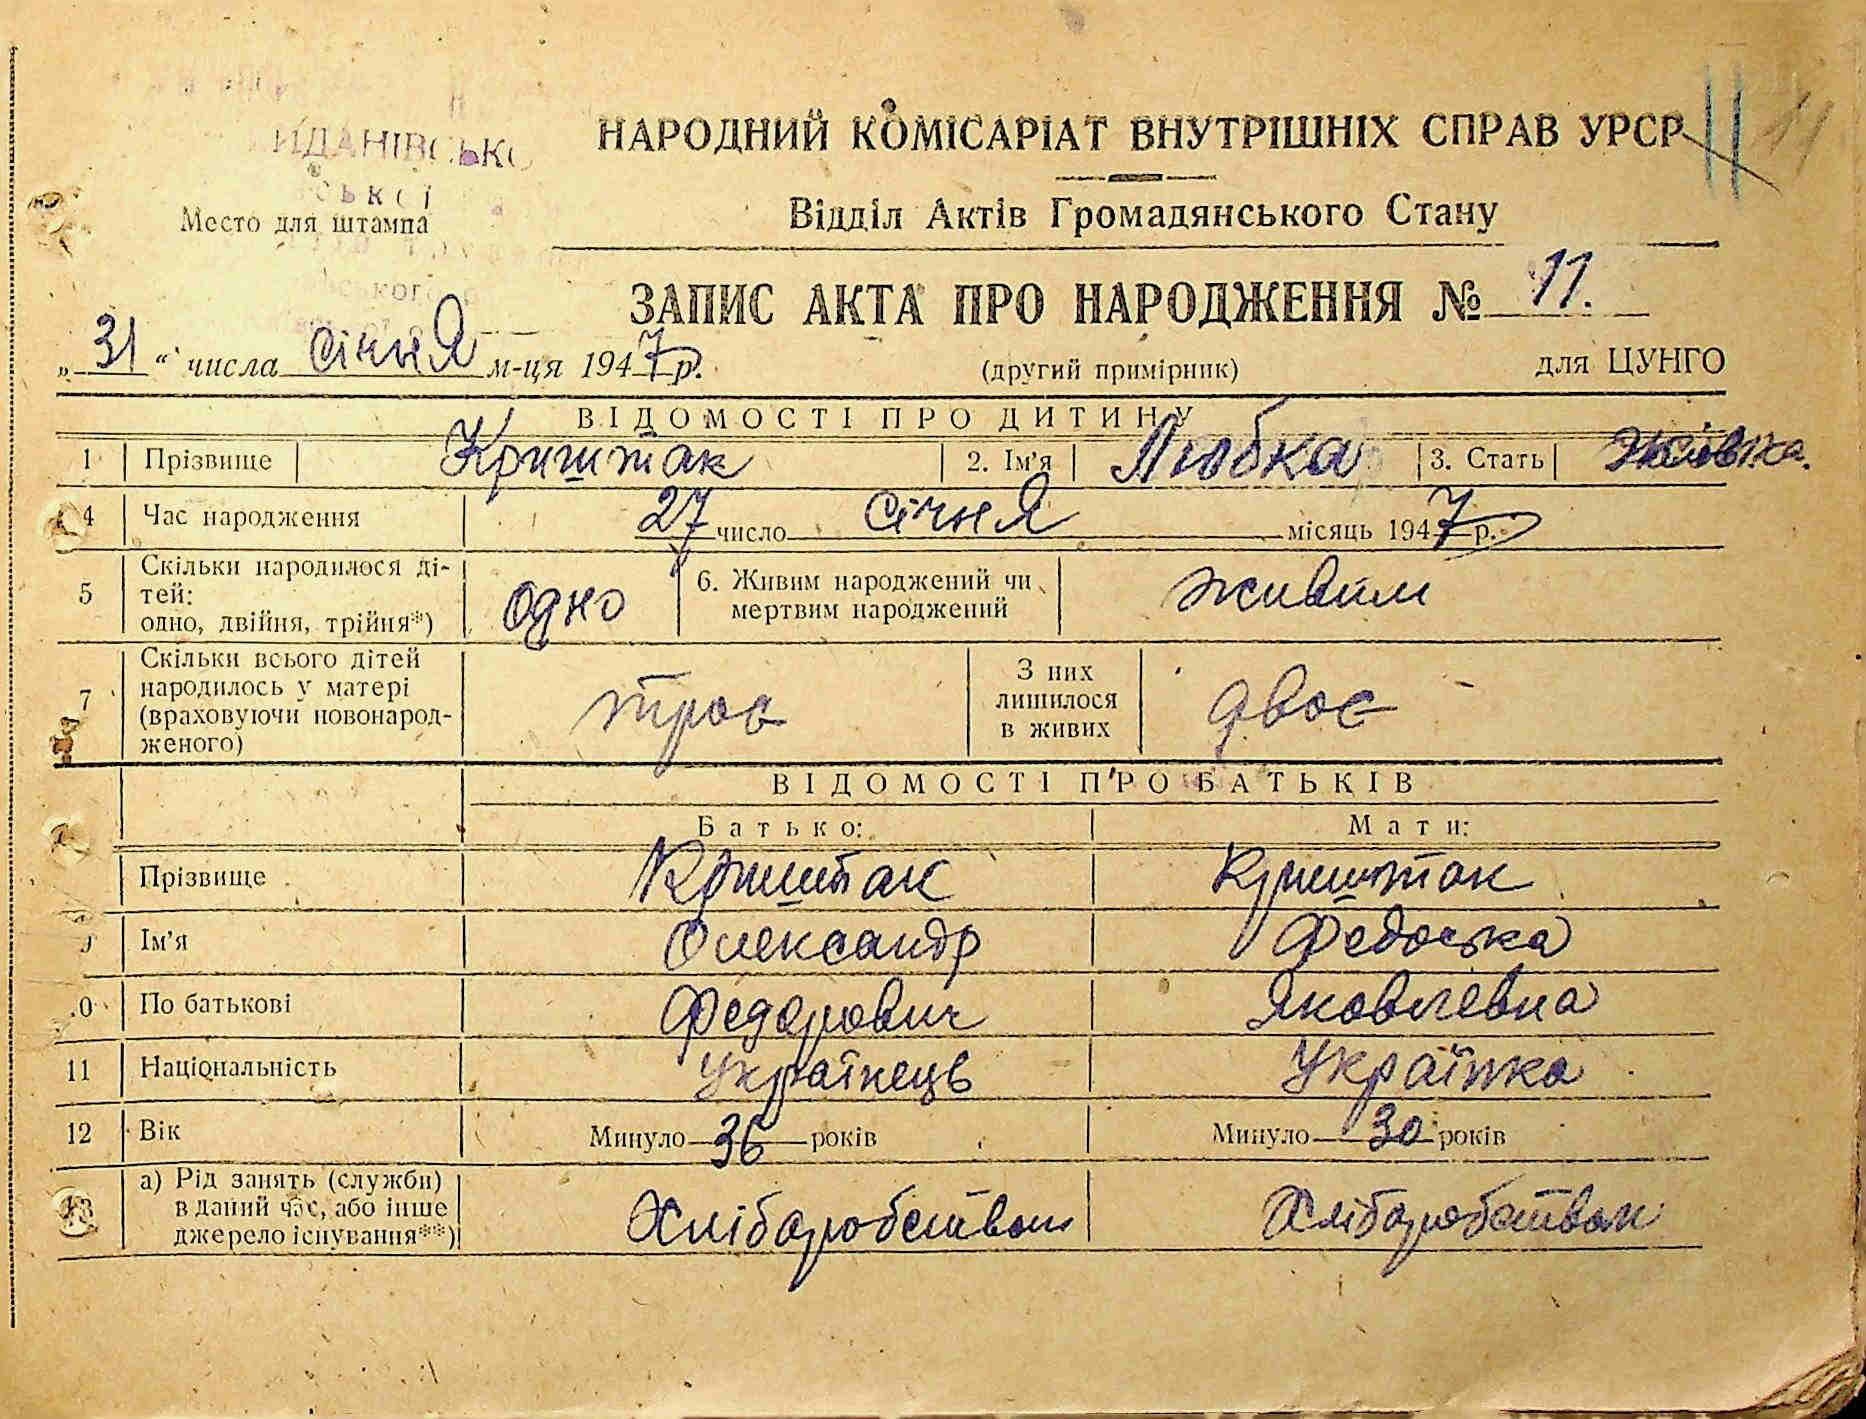 ЙДАНІВСЬКО
СЬКОЇ
Место для штампа
НАРОДНИЙ КОМІСАРІАТ ВНУТРІШНІХ СПРАВ УРСР
11
Відділ Актів Громадянського Стану
ЗАПИС АКТА ПРО НАРОДЖЕННЯ № 11.
„31“ числа січня м-ця 1947 р. (другий примірник) для ЦУНГО
ВІДОМОСТІ ПРО ДИТИНУ
1 Прізвище Криштак 2. Ім'я Любка 3. Стать
4 Час народження 27 число січня місяць 1947 р.
5 Скільки народилося ді-
тей:
одно, двійня, трійня*) одно 6. Живим народжений чи
мертвим народжений живим
7 Скільки всього дітей
народилось у матері
(враховуючи новонарод-
женого) троє З них
лишилося
в живих двоє
ВІДОМОСТІ ПРО БАТЬКІВ
Батько: Мати:
Прізвище Криштак Криштак
9 Ім'я Олександр Федоська
10 По батькові Федорович Яковлевна
11 Національність Українець Українка
12 Вік Минуло 36 років Минуло 30 років
13 а) Рід занять (служби)
в даний час, або інше
джерело існування**) Хліборобством Хліборобством